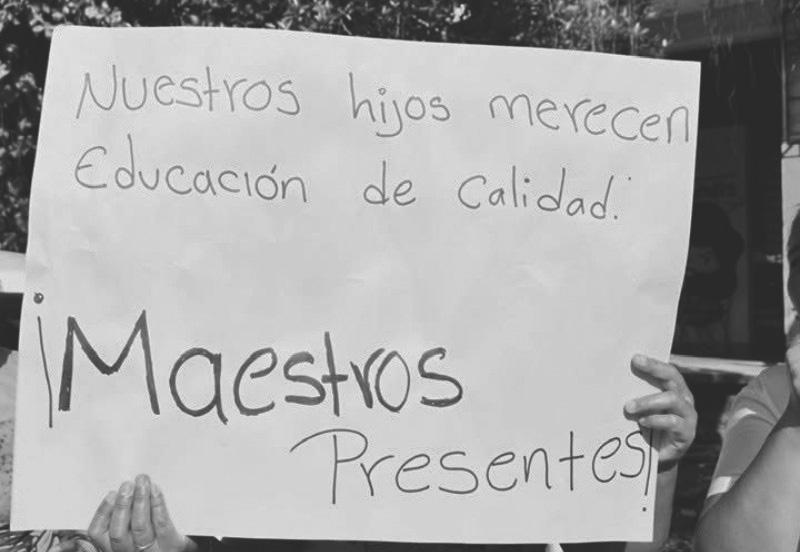 Nuestros hijos merecen
Educación de calidad.
¡Maestros
Presentes!